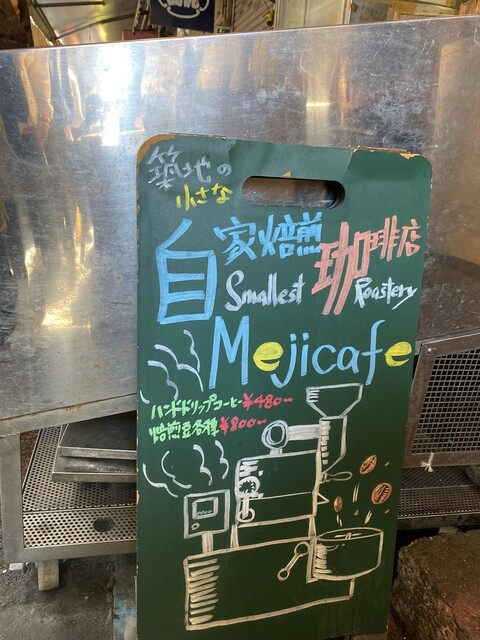 築地の
小さな
自家焙煎珈琲店
Smallest Roastery
Mejicafe
ハンドドリップコーヒー¥480~
焙煎豆各種¥800~